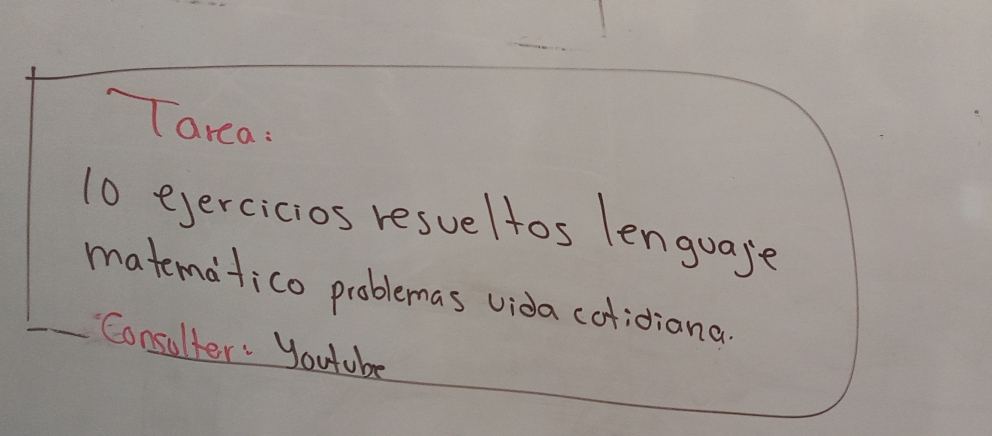 Tarea:
10 ejercicios resueltos lenguaje
matemático problemas vida cotidiana.
Consulter: Youtube